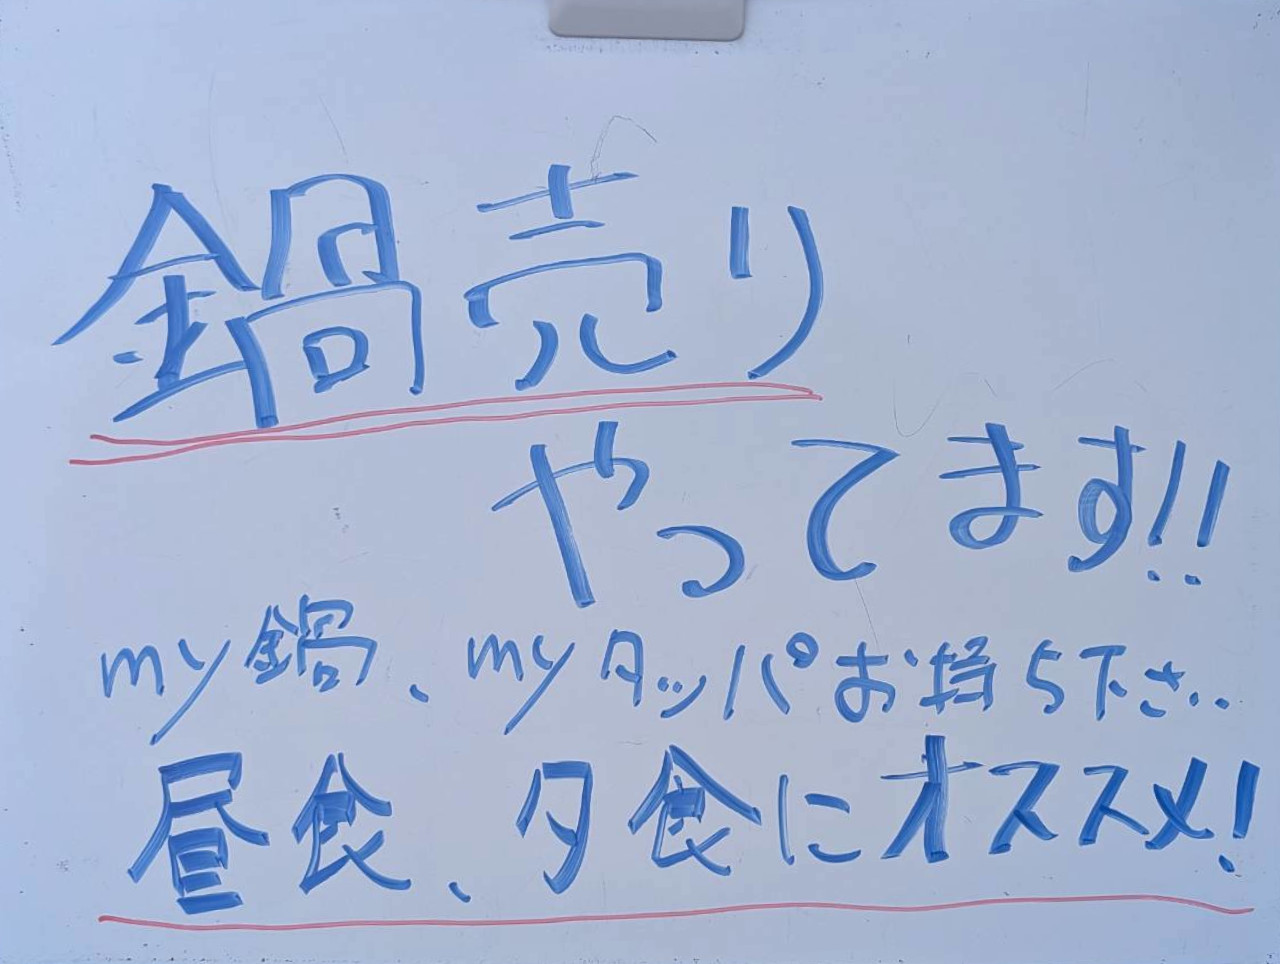 鍋売り
やってます!!
my鍋、myタッパお持ち下さい..
昼食、夕食にオススメ!